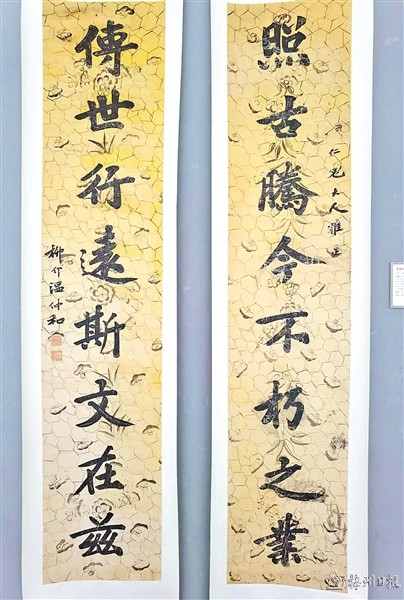 照古騰今不朽之業
仁兄大人雅正
傳世行遠斯文在茲
柳介溫仲和
梅州日报